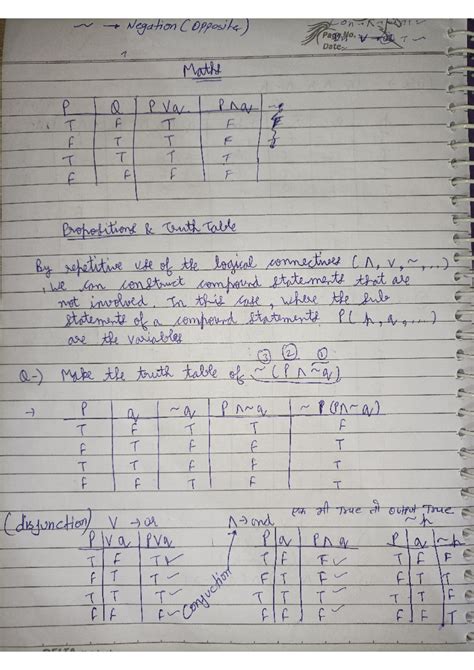 ~ → Negation (Opposite)
Page No.
Date:
Maths
P Q P V q P ∧ q
T F T F
F T T F
T T T T
F F F F
Propositions & Truth Table
By repetitive use of the logical connectives (∧, v, ~, ...)
, We can construct compound statements that are
not involved. In this case, where the sub
statements of a compound statements P(p, q, ...)
are the variables
③ ② ①
Q-) Make the truth table of ~(P ∧ ~q)
→ P q ~q P∧~q ~ P (P∧~q)
T F T T F
F T F F T
T T F F T
F F T F T
एक भी True तो output True
(disjunction) V → or ∧ → and ~p
Conjuction
P V q PVq P q P ∧ q P q ~p
T F T ✓ T F F ✓ T F F
F T T ✓ F T F ✓ F T T
T T T ✓ T T T ✓ T T F
F F F ✓ F F F ✓ F F T